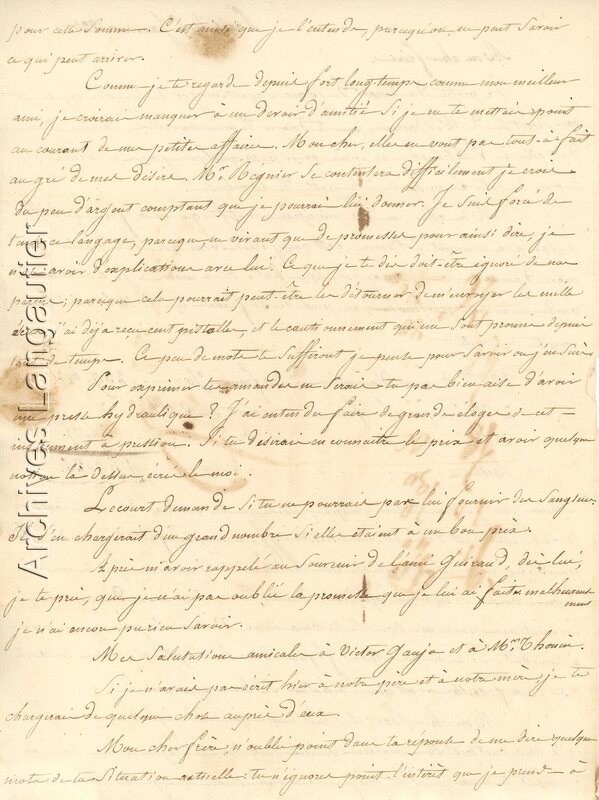 pour cette somme. C'est ainsi que je l'entends parcequ'on ne peut savoir
ce qui peut arriver.
Comme je te regarde depuis fort long-temps comme mon meilleur
ami, je croirais manquer à un devoir d'amitié si je ne te mettais point
au courant de mes petites affaires. Mon cher, elles ne vont pas tout-à-fait
au gré de mes désirs. Mr. Régnier se contentera difficilement je crois
du peu d'argent comptant que je pourrai lui donner. Je suis forcé de
ce langage, parceque ne vivant que de promesses pour ainsi dire, je
avoir d'explications avec lui. Ce que je te dis doit-être ignoré de nos
parens; parceque cela pourrait peut-être les détourner de m'envoyer les mille
j'ai déja reçu cent pistolles, et le cautionnement qui me sont promis depuis
de temps. Ce peu de mots te suffiront je pense pour savoir où j'en suis.
Pour exprimer tes amandes ne serais-tu pas bien aise d'avoir
une presse hydraulique? J'ai entendu faire de grands éloges de cet
instrument à pression. Si tu désirais en connaître le prix et avoir quelque
notion là dessus, écris le moi.
Locourt demande si tu ne pourrais pas lui fournir des sangsues.
Il s'en chargerait d'un grand nombre si elles étaient à un bon prix.
Après m'avoir rappelé au souvenir de l'ami Guiraud, dis lui,
je te prie, que je n'ai pas oublié la promesse que je lui ai faite malheureusement
je n'ai encore pu rien savoir.
Mes salutations amicales à Victor Gauja et à Mr. Thouin.
Si je n'avais pas écrit hier à notre père et à notre mère, je te
chargerais de quelque chose auprès d'eux.
Mon cher frère, n'oublie point dans ta réponse de me dire quelques
mots de ta situation actuelle: tu n'ignores point l'intérêt que je prends à
Archives Langautier